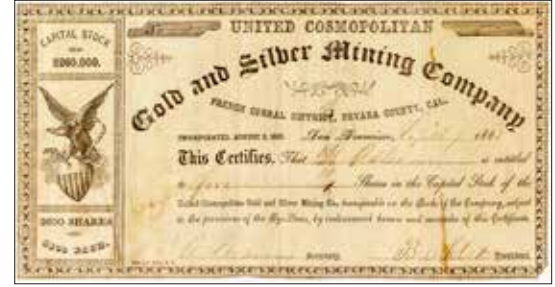 CAPITAL STOCK
$260,000.
2600 SHARES
$100 EACH.
UNITED COSMOPOLITAN
Gold and Silver Mining Company
FRENCH CORRAL DISTRICT, NEVADA COUNTY, CAL.
INCORPORATED, AUGUST San Francisco, 186
This Certifies, That is entitled
to five Shares in the Capital Stock of the
United Cosmopolitan Gold and Silver Mining Co., transferable on the Books of the Company, subject
to the provisions of the By-Laws, by endorsement hereon and surrender of this Certificate.
Secretary. President.